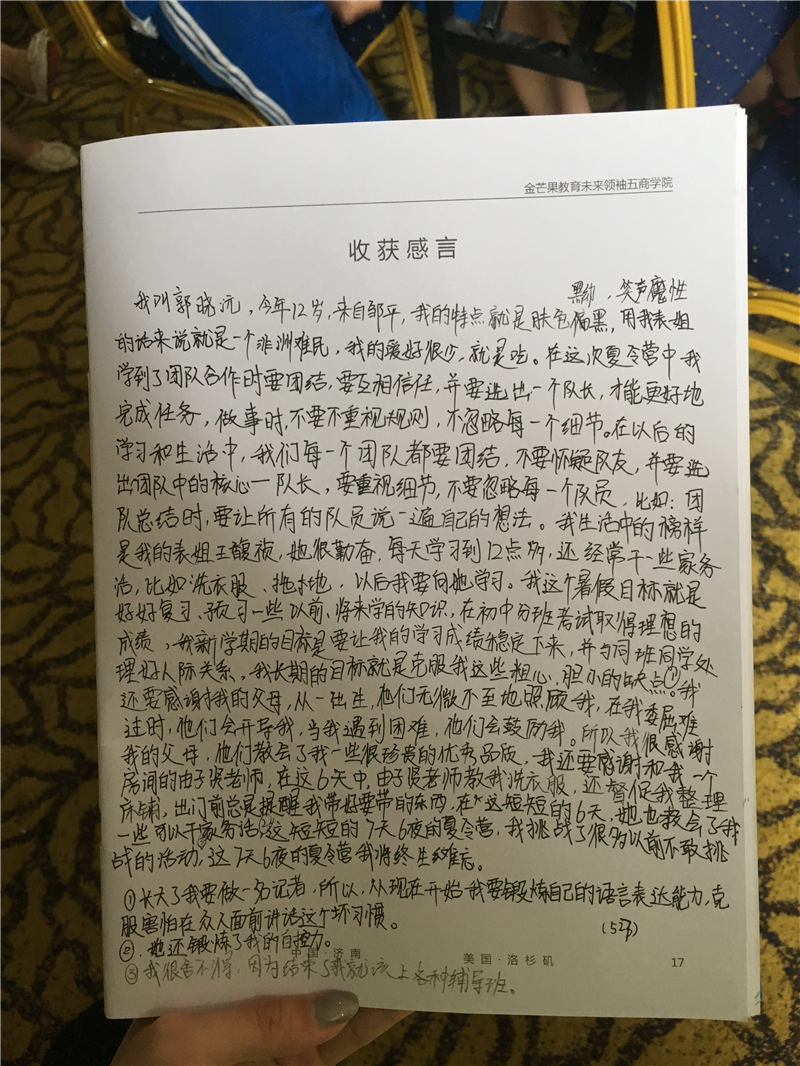 金芒果教育未来领袖五商学院
收获感言
黑幼、笑声魔性
我叫郭晓沅，今年12岁，来自邹平，我的特点就是肤色偏黑，用我表姐
的话来说就是一个非洲难民，我的爱好很少，就是吃。在这次夏令营中我
学到了团队合作时要团结，要互相信任，并要选出一个队长，才能更好地
完成任务，做事时，不要不重视规则，不忽略每一个细节。在以后的
学习和生活中，我们每一个团队都要团结，不要怀疑队友，并要选
出团队中的核心一队长，要重视细节，不要忽略每一个队员，比如：团
队总结时，要让所有的队员说一遍自己的想法。我生活中的榜样
是我的表姐王馥祯，她很勤奋，每天学习到12点多，还经常干一些家务
活，比如洗衣服、拖地，以后我要向她学习。我这个暑假目标就是
好好复习、预习一些以前、将来学的知识，在初中分班考试取得理想的
成绩，我新学期的目标是要让我的学习成绩稳定下来，并与同班同学处
理好人际关系，我长期的目标就是克服我这些粗心、胆小的缺点。①我
还要感谢我的父母，从一出生，他们无微不至地照顾我，在我委屈难
过时，他们会开导我，当我遇到困难，他们会鼓励我。所以我很感谢
我的父母，他们教会了我一些很珍贵的优秀品质，我还要感谢和我一个
房间的由子贤老师，在这6天中，由子贤老师教我洗衣服，还督促我整理
床铺，出门前总是提醒我带好要带的东西，在这短短的6天，她也教会了我
一些可以干家务活②这短短的7天6夜的夏令营，我挑战了很多以前不敢挑
战的活动，③这7天6夜的夏令营我将终生难忘。
①长大了我要做一名记者，所以，从现在开始我要锻炼自己的语言表达能力，克
服害怕在众人面前讲话这个坏习惯。
（523）
②她还锻炼了我的自控力。
中国·济南 美国·洛杉矶 17
③我很舍不得，因为结束了我就该上各种辅导班。